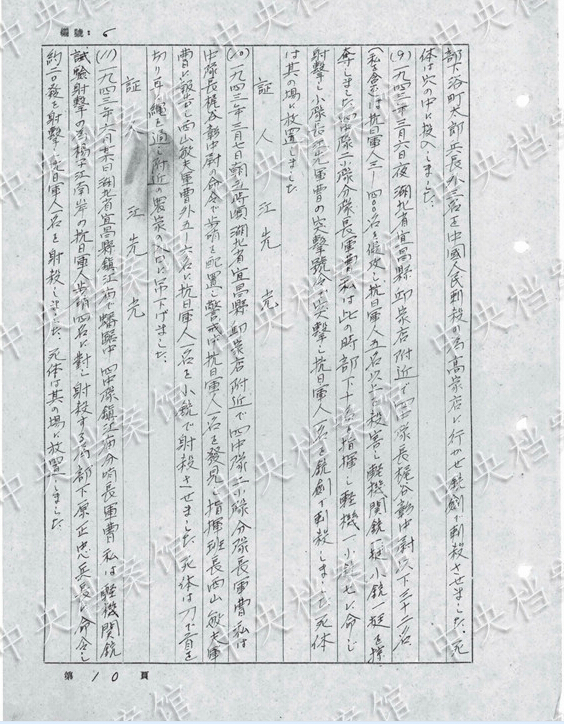 編號: 6
部下浴町太郎兵長外二名を中国人民刺殺の為高家店に行かせ銃剣で刺殺させました。死
体は穴の中に投入しました。
(9) 一九四三年三月六日夜湖北省宜昌縣 附近で四中隊長梶谷彰中尉以下三十二名
(私を含む)は抗日軍人三、四〇名を し抗日軍人五名以上を殺害し軽機関銃一挺小銃一挺を掠
奪しました。四中隊二小隊分隊長軍曹私は此の時部下十名を指揮し軽機一小銃七に命じ
射撃し小隊長 軍曹の突撃號令で突撃し抗日軍人一名を銃剣で刺殺しました。死体
は其の場に放置しました。
証人 江先光
(10) 一九四三年三月七日朝五時頃湖北省宜昌縣 附近で四中隊二小隊分隊長軍曹私は
中隊長梶谷彰中尉の命令で歩哨を配置し警戒中抗日軍人一名を發見し指揮班長西山敏夫軍
曹に報告し西山敏夫軍曹外五、六名に抗日軍人一名を小銃で射殺させました。死体は刀で首を
切り耳に縄を通し附近の農家の入口に吊下げました。
証人 江先光
(11) 一九四三年六月末日湖北省宜昌縣鎮江 で 中四中隊鎮江 分哨長軍曹私は軽機関銃
試験射撃の為揚子江南岸の抗日軍人歩哨四名に對し射殺する為部下原正忠兵長に命令し
約二〇発を射撃し抗日軍人一名を射殺しました。死体は其の場に放置しました。
第 10 頁
中央档案馆